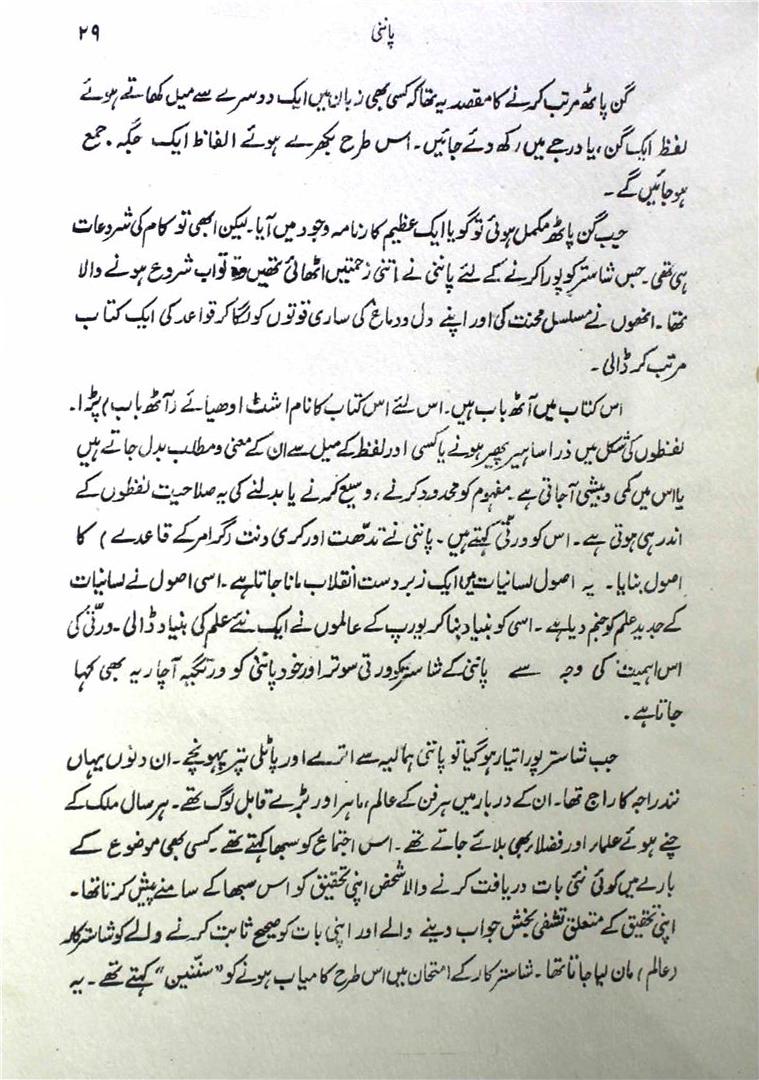 ۲۹
پاننی
گن پاٹھ مرتب کرنے کا مقصد یہ تھا کہ کسی بھی زبان میں ایک دوسرے سے میل کھاتے ہوئے
لفظ ایک گن، یا درجے میں رکھ دئے جائیں۔ اس طرح بکھرے ہوئے الفاظ ایک جگہ جمع
ہو جائیں گے۔
جب گن پاٹھ مکمل ہوئی تو گویا ایک عظیم کارنامہ وجود میں آیا۔ لیکن ابھی تو کام کی شروعات
ہی تھی۔ جس شاستر کو پورا کرنے کے لئے پاننی نے اتنی زحمتیں اٹھائی تھیں وہ تو اب شروع ہونے والا
تھا۔ انھوں نے مسلسل محنت کی اور اپنے دل و دماغ کی ساری قوتوں کو لگا کر قواعد کی ایک کتاب
مرتب کر ڈالی۔
اس کتاب میں آٹھ باب ہیں۔ اس لئے اس کتاب کا نام اشٹ ادھیائے (آٹھ باب) پڑا۔
لفظوں کی شکل میں ذرا سا ہیر پھیر ہونے یا کسی اور لفظ کے میل سے ان کے معنی و مطلب بدل جاتے ہیں
یا اس میں کمی و بیشی آجاتی ہے۔ مفہوم کو محدود کرنے، وسیع کرنے یا بدلنے کی یہ صلاحیت لفظوں کے
اندر ہی ہوتی ہے۔ اس کو ورتّی کہتے ہیں۔ پاننی نے تدھت اور کری دنت (گرامر کے قاعدے) کا
اصول بنایا۔ یہ اصول لسانیات میں ایک زبردست انقلاب مانا جاتا ہے۔ اسی اصول نے لسانیات
کے جدید علم کو جنم دیا ہے۔ اسی کو بنیاد بنا کر یورپ کے عالموں نے ایک نئے علم کی بنیاد ڈالی۔ ورتّی کی
اس اہمیت کی وجہ سے پاننی کے شاستر کو ورتی سوتر اور خود پاننی کو ورتگیہ آچاریہ بھی کہا
جاتا ہے۔
جب شاستر پورا تیار ہو گیا تو پاننی ہمالیہ سے اترے اور پاٹلی پتر پہونچے۔ ان دنوں یہاں
نند راجہ کا راج تھا۔ ان کے دربار میں ہر فن کے عالم، ماہر اور بڑے قابل لوگ تھے۔ ہر سال ملک کے
چنے ہوئے علماء اور فضلاء بھی بلائے جاتے تھے۔ اس اجتماع کو سبھا کہتے تھے۔ کسی بھی موضوع کے
بارے میں کوئی نئی بات دریافت کرنے والا شخص اپنی تحقیق کو اس سبھا کے سامنے پیش کرتا تھا۔
اپنی تحقیق کے متعلق تشفی بخش جواب دینے والے اور اپنی بات کو صحیح ثابت کرنے والے کو شاستر کار
(عالم) مان لیا جاتا تھا۔ شاستر کار کے امتحان میں اس طرح کامیاب ہونے کو ”سنّنین“ کہتے تھے۔ یہ